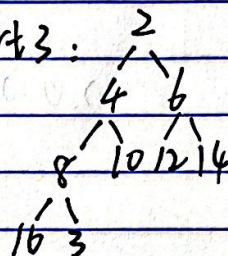 t3: 2
4 6
8 10 12 14
16 3